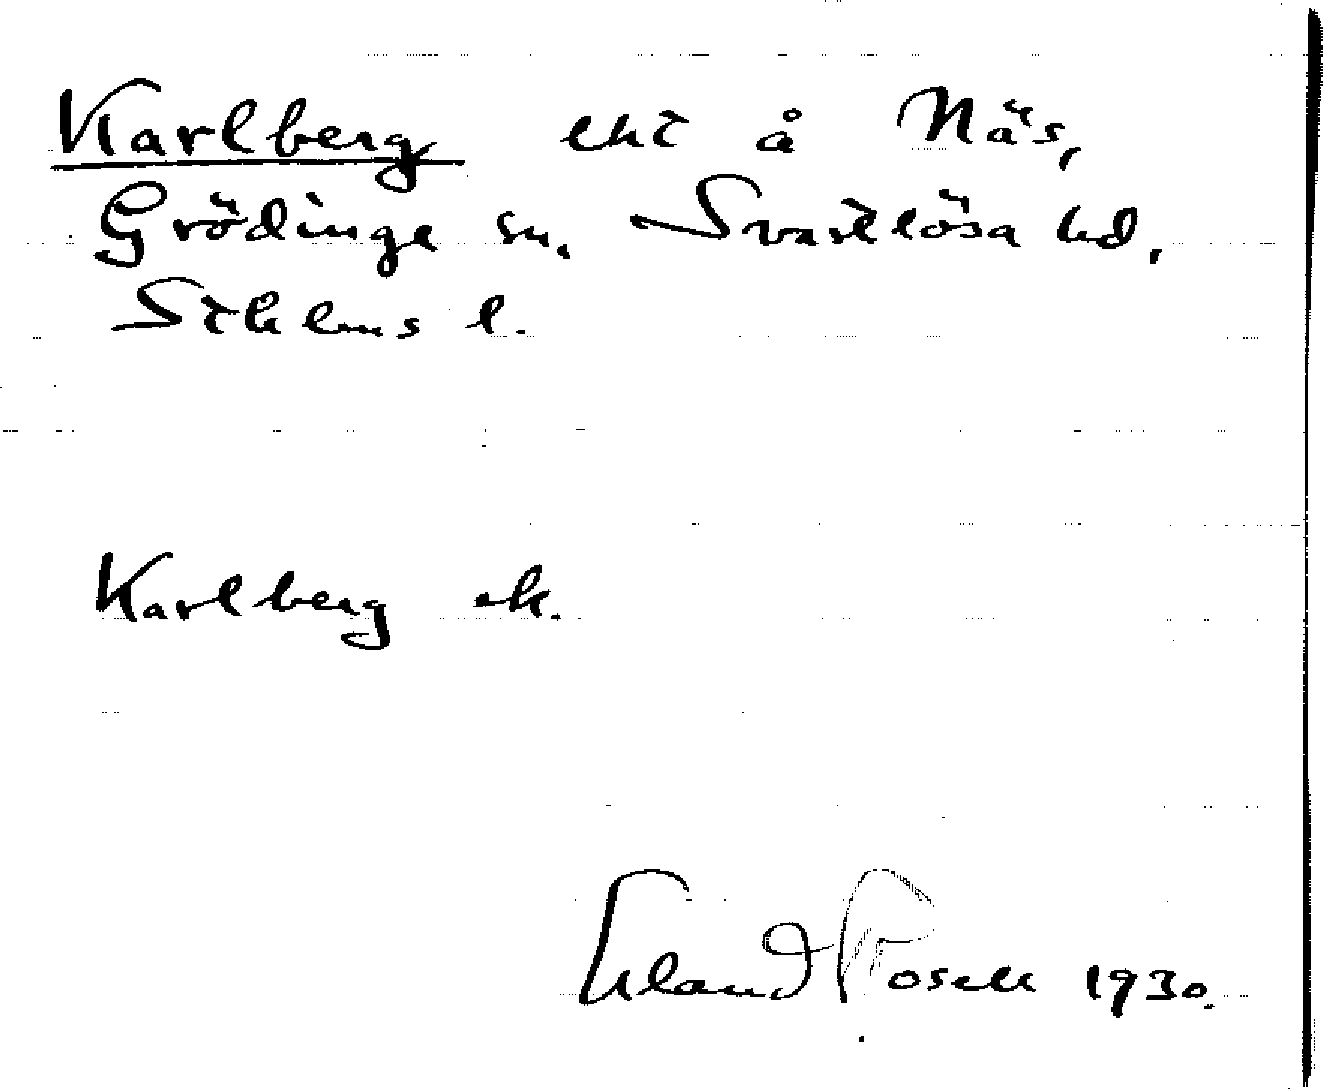 Karlberg lht å Näs,
Grödinge sn. Svartlösa hd,
Sthlms l.
Karlberg ek.
Erland Rosell 1930.